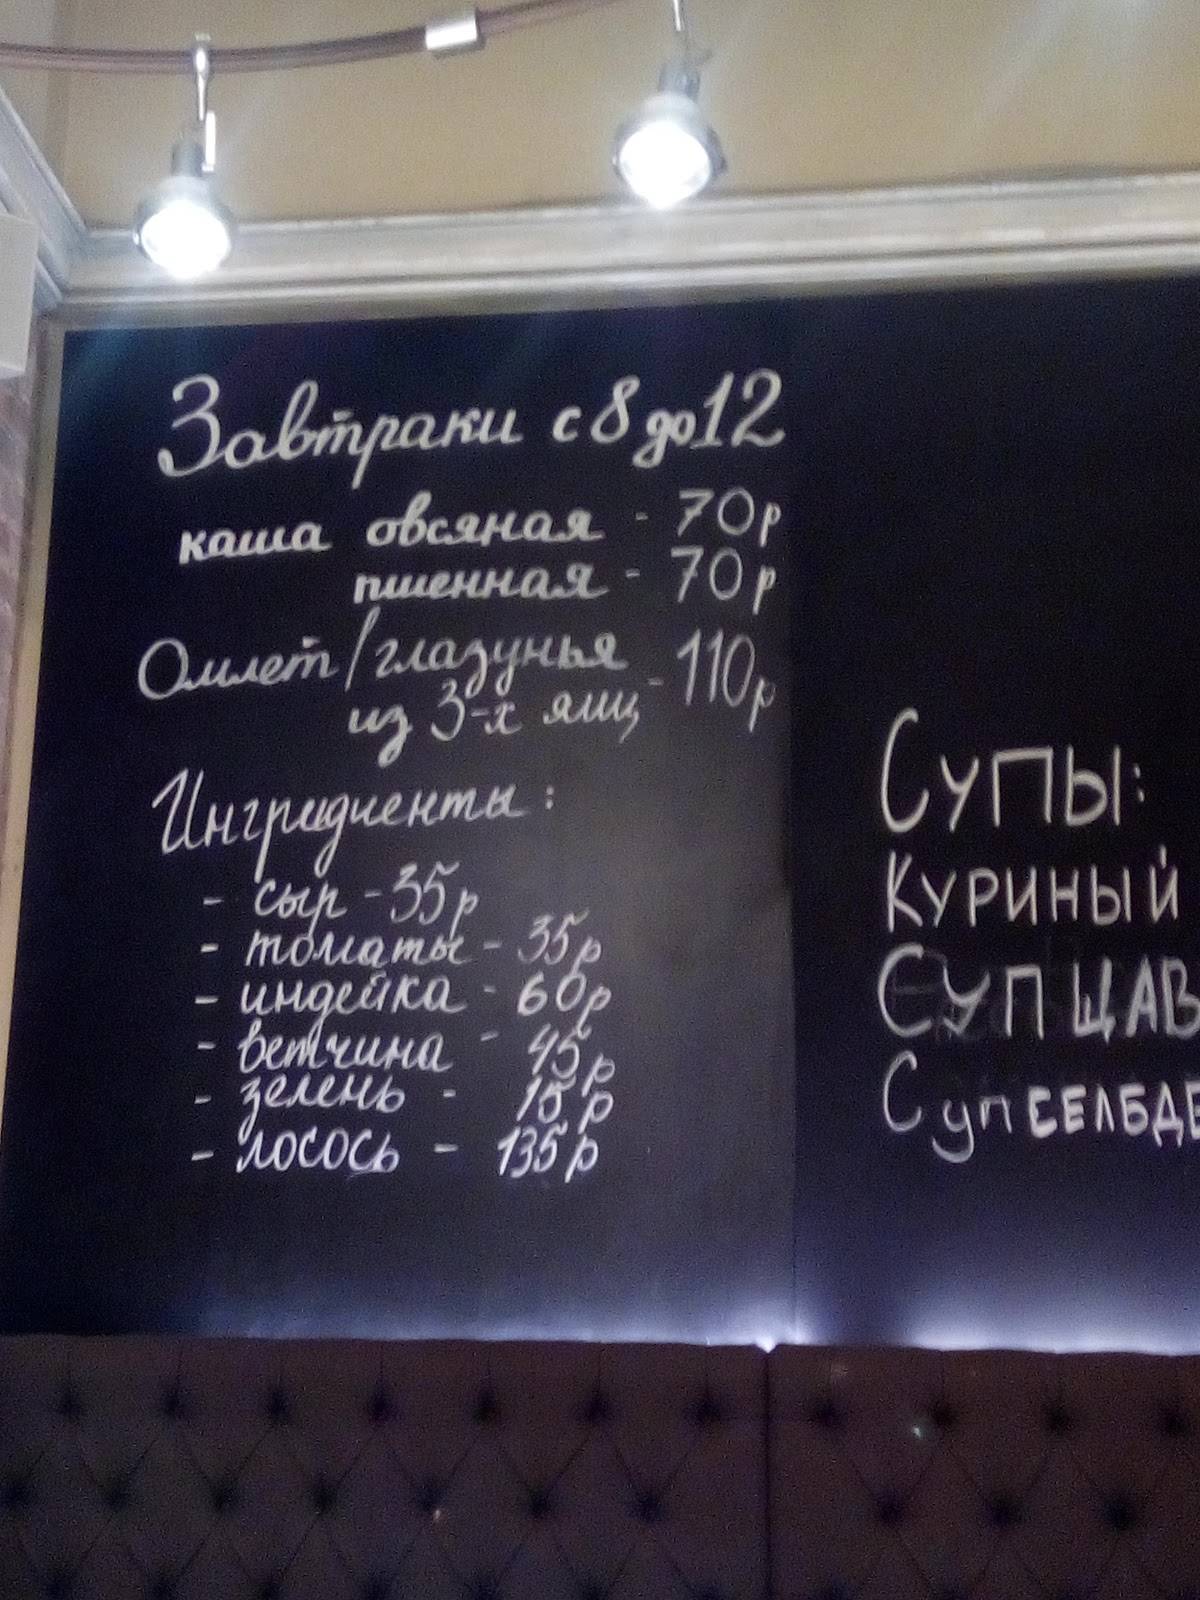 Завтраки с 8 до 12
каша овсяная - 70р
пшенная - 70р
Омлет/глазунья
из 3-х яиц - 110р
Ингридиенты:
- сыр - 35р
- томаты - 35р
- индейка - 60р
- ветчина - 45р
- зелень - 15р
- лосось - 135р
Супы:
Куриный
Суп щав
Суп сельде